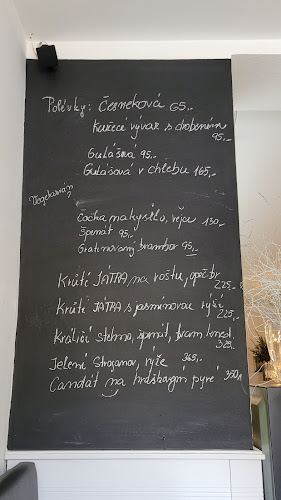 Polévky: Česneková 65,-
Kuřecí vývar s drobením
95,-
Gulášová 95,-
Gulášová v chlebu 165,-
Vegetarián
Čočka na kyselo, vejce 130,-
Špenát 95,-
Gratinovaný brambor 95,-
Krůtí JÁTRA na roštu, opeč. br.
225,-
Krůtí JÁTRA s jasmínovou rýží
225,-
Králičí stehno, špenát, bram. knedl.
325,-
Jelení Stroganov, rýže 365,-
Candát na hráškovém pyré 350,-